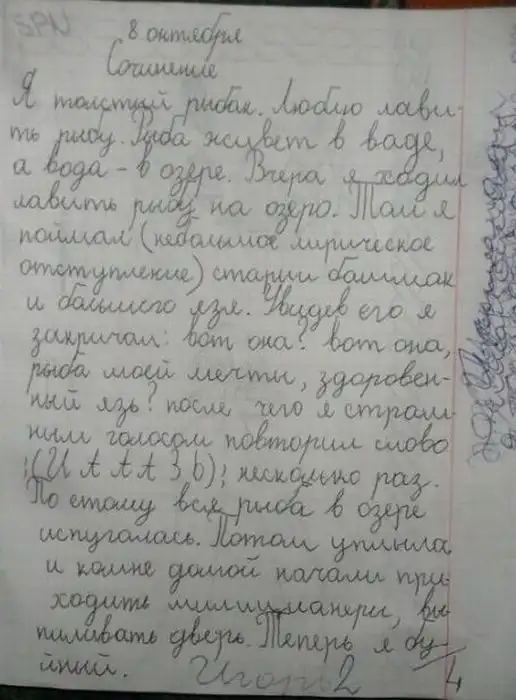 SPN
8 онтября
Сочинение
Я толстый рыбак. Люблю лави-
ть рыбу. Рыба живет в ваде,
а вода - в озере. Вчера я ходил
лавить рыбу на озеро. Там я
поймал (небольшое лирическое
отступление) старии башмак
и большого язя. Увидев его я
закричал: вот она? вот она,
рыба моей мечты, здоровен-
ный язь? после чего я страш-
ным голосом повторил слово
;(И А А А З Ь); несколько раз.
По етому вся рыба в озере
испугалась. Потом уплыла
и комне домой начали при-
ходить милиционеры, вы-
пиливать дверь. Теперь я бу-
йный.
Игорь 2